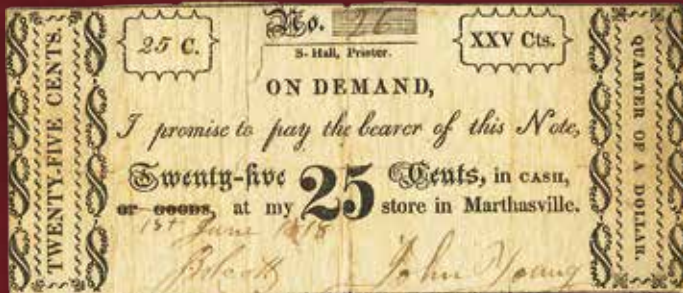 TWENTY-FIVE CENTS.
25 C.
No. 26
S. Hall, Printer.
XXV Cts.
ON DEMAND,
I promise to pay the bearer of this Note,
Twenty-five 25 Cents, in CASH,
or goods, at my store in Marthasville.
1st June 1818
John Young
QUARTER OF A DOLLAR.